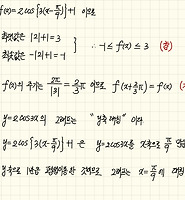 f(x)=2cos[3(x-π/9)]+1 이므로
최댓값은 |2|+1=3
최솟값은 -|2|+1=-1
∴ -1≤f(x)≤3 (참)
f(x)의 주기는 2π/|3|=2/3π 이므로 f(x+2/3π)=f(x)
y=2cos3x의 그래프는 "y축 대칭" 이다
y=2cos[3(x-π/9)]+1 은 y=2cos3x를 x축으로 π/9 만큼
y축으로 1만큼 평행이동한 것이므로 그래프는 x=π/9 에 대칭